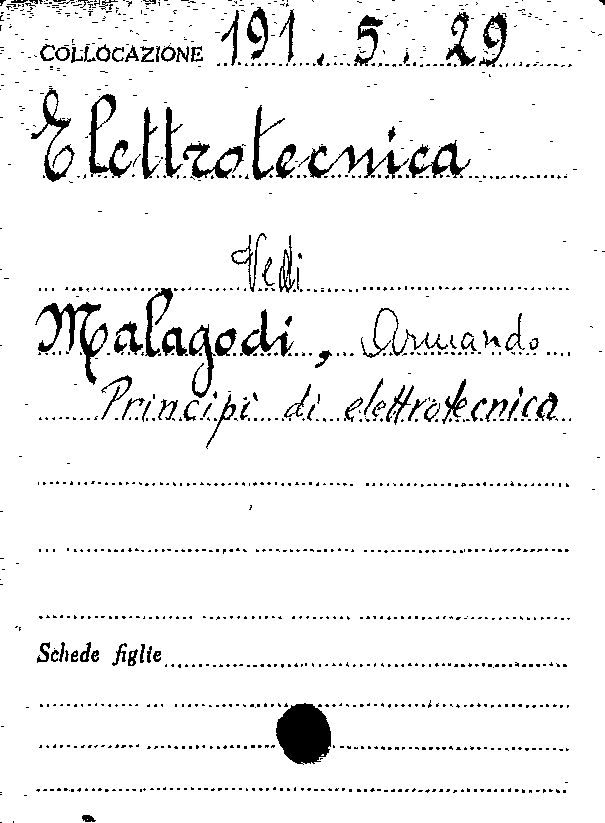 COLLOCAZIONE 191.5.29
Elettrotecnica
Vedi
Malagodi, Armando
Principi di elettrotecnica
Schede figlie